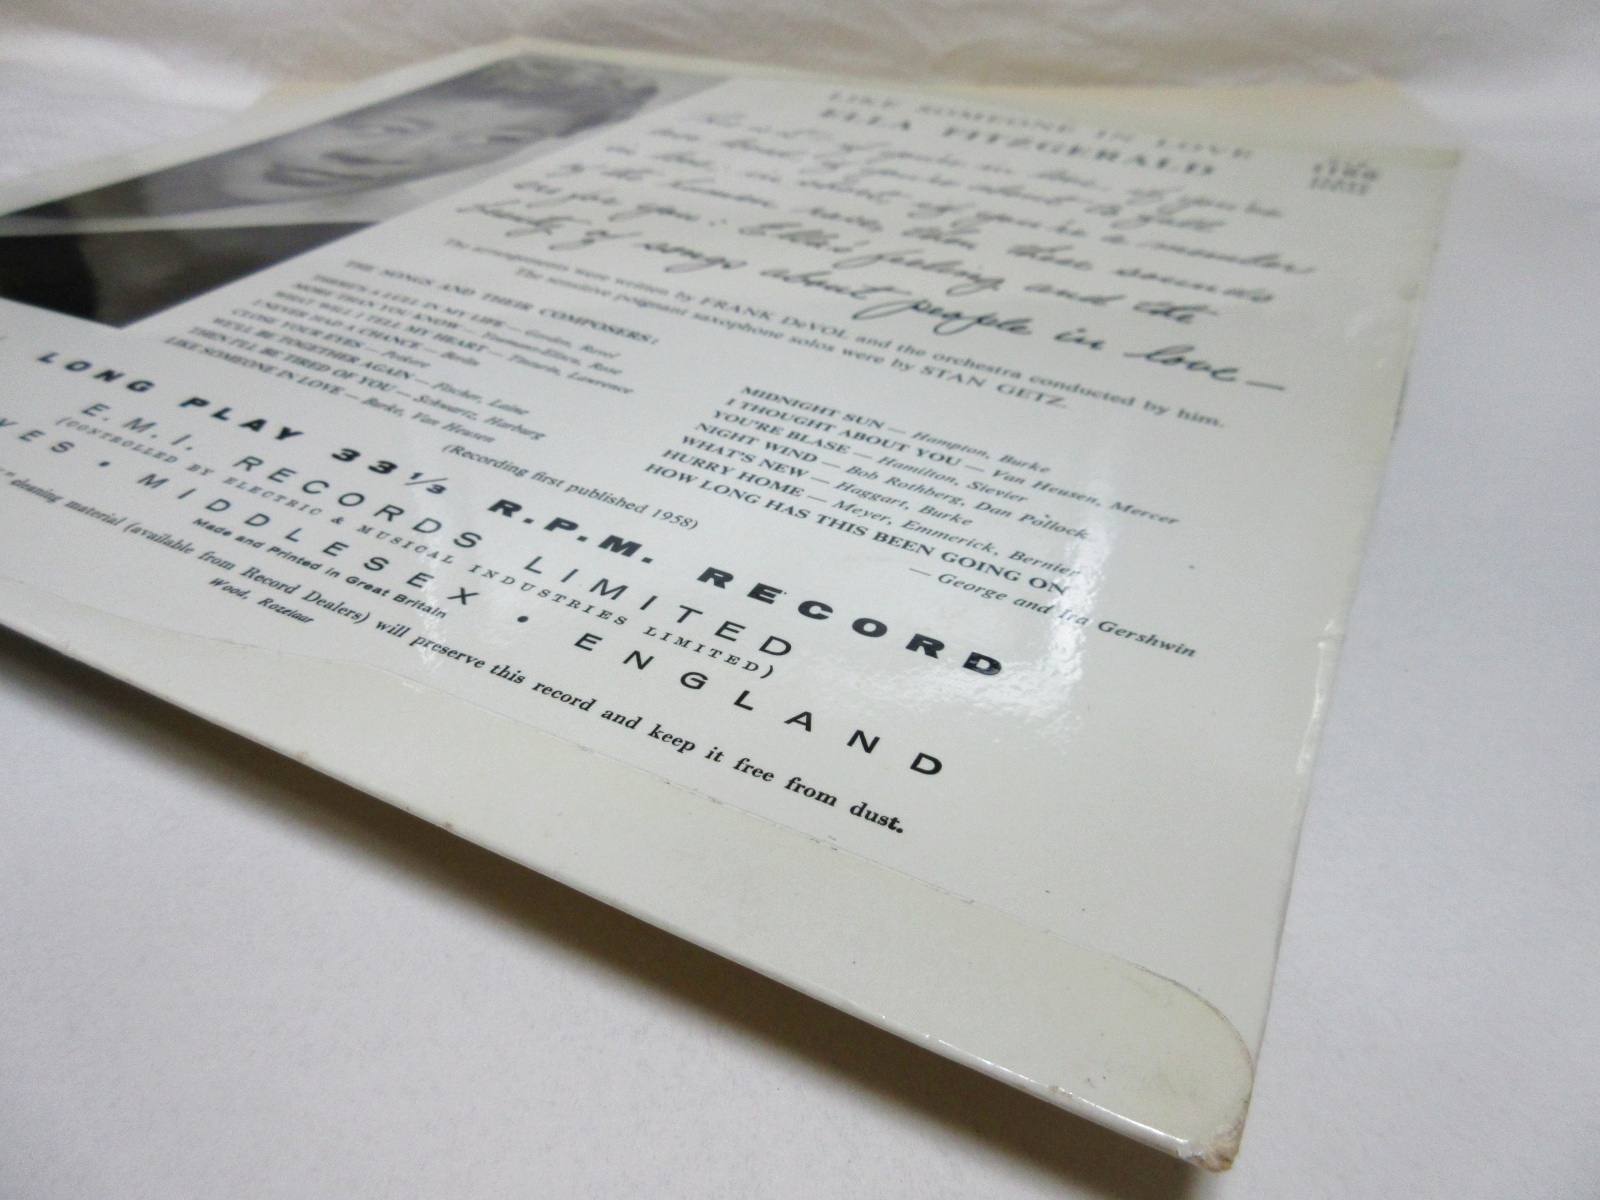 LIKE SOMEONE IN LOVE
ELLA FITZGERALD
if you're in love, if you're
about to fall
in love, in short, if you're a member
of the human race, then these sounds
are for you: Ella's feeling and the
beauty of songs about people in love—
The arrangements were written by FRANK DeVOL and the orchestra conducted by him.
The sensitive poignant saxophone solos were by STAN GETZ.
THE SONGS AND THEIR COMPOSERS:
THERE'S A LULL IN MY LIFE — Gordon, Revel
MORE THAN YOU KNOW — Youmans-Eliscu, Rose
WHAT WILL I TELL MY HEART — Tinturin, Lawrence
I NEVER HAD A CHANCE — Berlin
CLOSE YOUR EYES — Petkere
WE'LL BE TOGETHER AGAIN — Fischer, Laine
THEN I'LL BE TIRED OF YOU — Schwartz, Harburg
LIKE SOMEONE IN LOVE — Burke, Van Heusen
MIDNIGHT SUN — Hampton, Burke
I THOUGHT ABOUT YOU — Van Heusen, Mercer
YOU'RE BLASE — Hamilton, Sievier
NIGHT WIND — Bob Rothberg, Dan Pollock
WHAT'S NEW — Haggart, Burke
HURRY HOME — Meyer, Emmerick, Bernier
HOW LONG HAS THIS BEEN GOING ON
— George and Ira Gershwin
(Recording first published 1958)
LONG PLAY 33⅓ R.P.M. RECORD
E.M.I. RECORDS LIMITED
(CONTROLLED BY ELECTRIC & MUSICAL INDUSTRIES LIMITED)
VES • MIDDLESEX • ENGLAND
Made and Printed in Great Britain
cleaning material (available from Record Dealers) will preserve this record and keep it free from dust.
Wood, Rozelaar